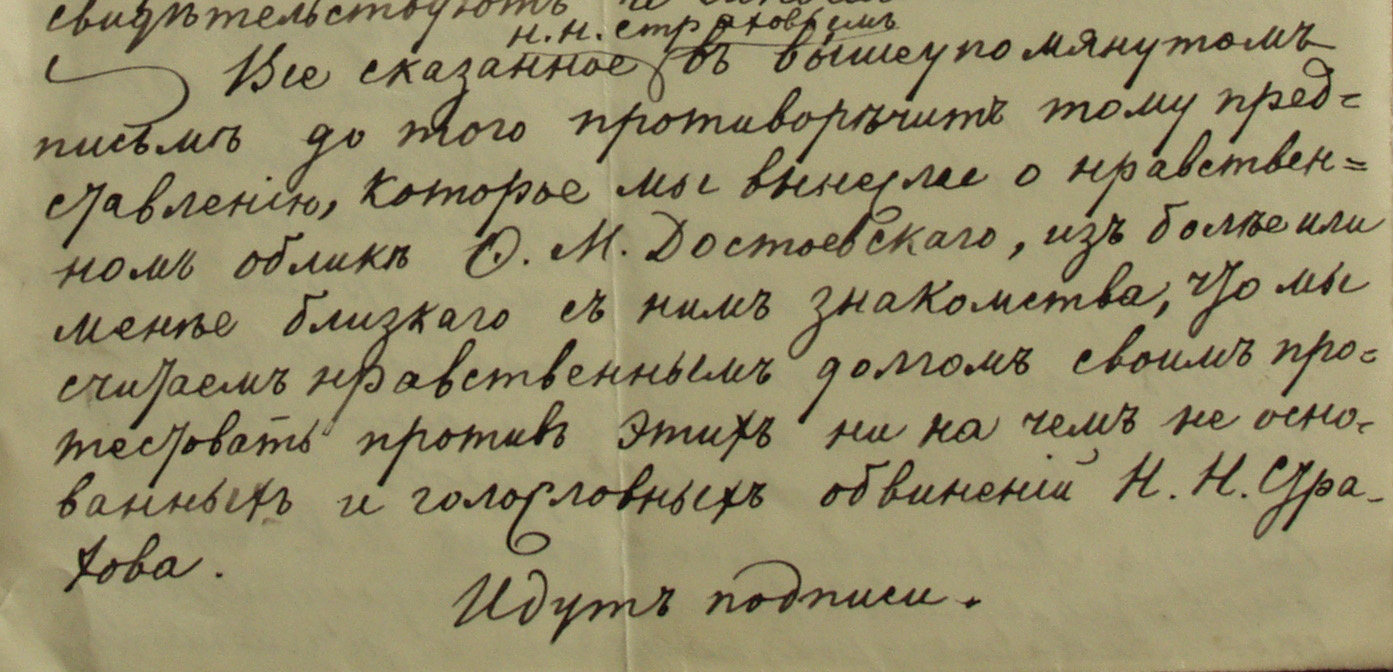 свидѣтельствуютъ и
н. н. страховымъ
Все сказанное въ вышеупомянутомъ
письмѣ до того противорѣчитъ тому пред=
ставленію, которое мы вынесли о нравствен=
номъ обликѣ Ѳ. М. Достоевскаго, изъ болѣе или
менѣе близкаго съ нимъ знакомства, что мы
считаемъ нравственнымъ долгомъ своимъ про=
тестовать противъ этихъ ни на чемъ не осно=
ванныхъ и голословныхъ обвиненій Н. Н. Стра-
хова.
Идутъ подписи.